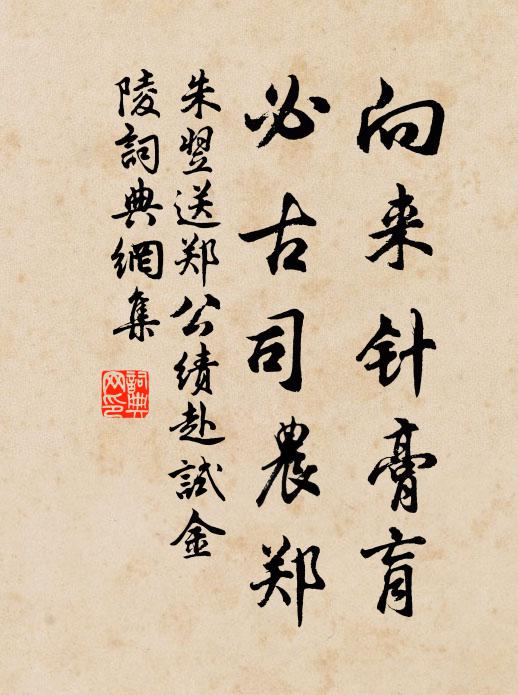 向来针膏肓
必古司農郑
朱翌送郑公绩赴試金
陵詞典網集
詞典網印